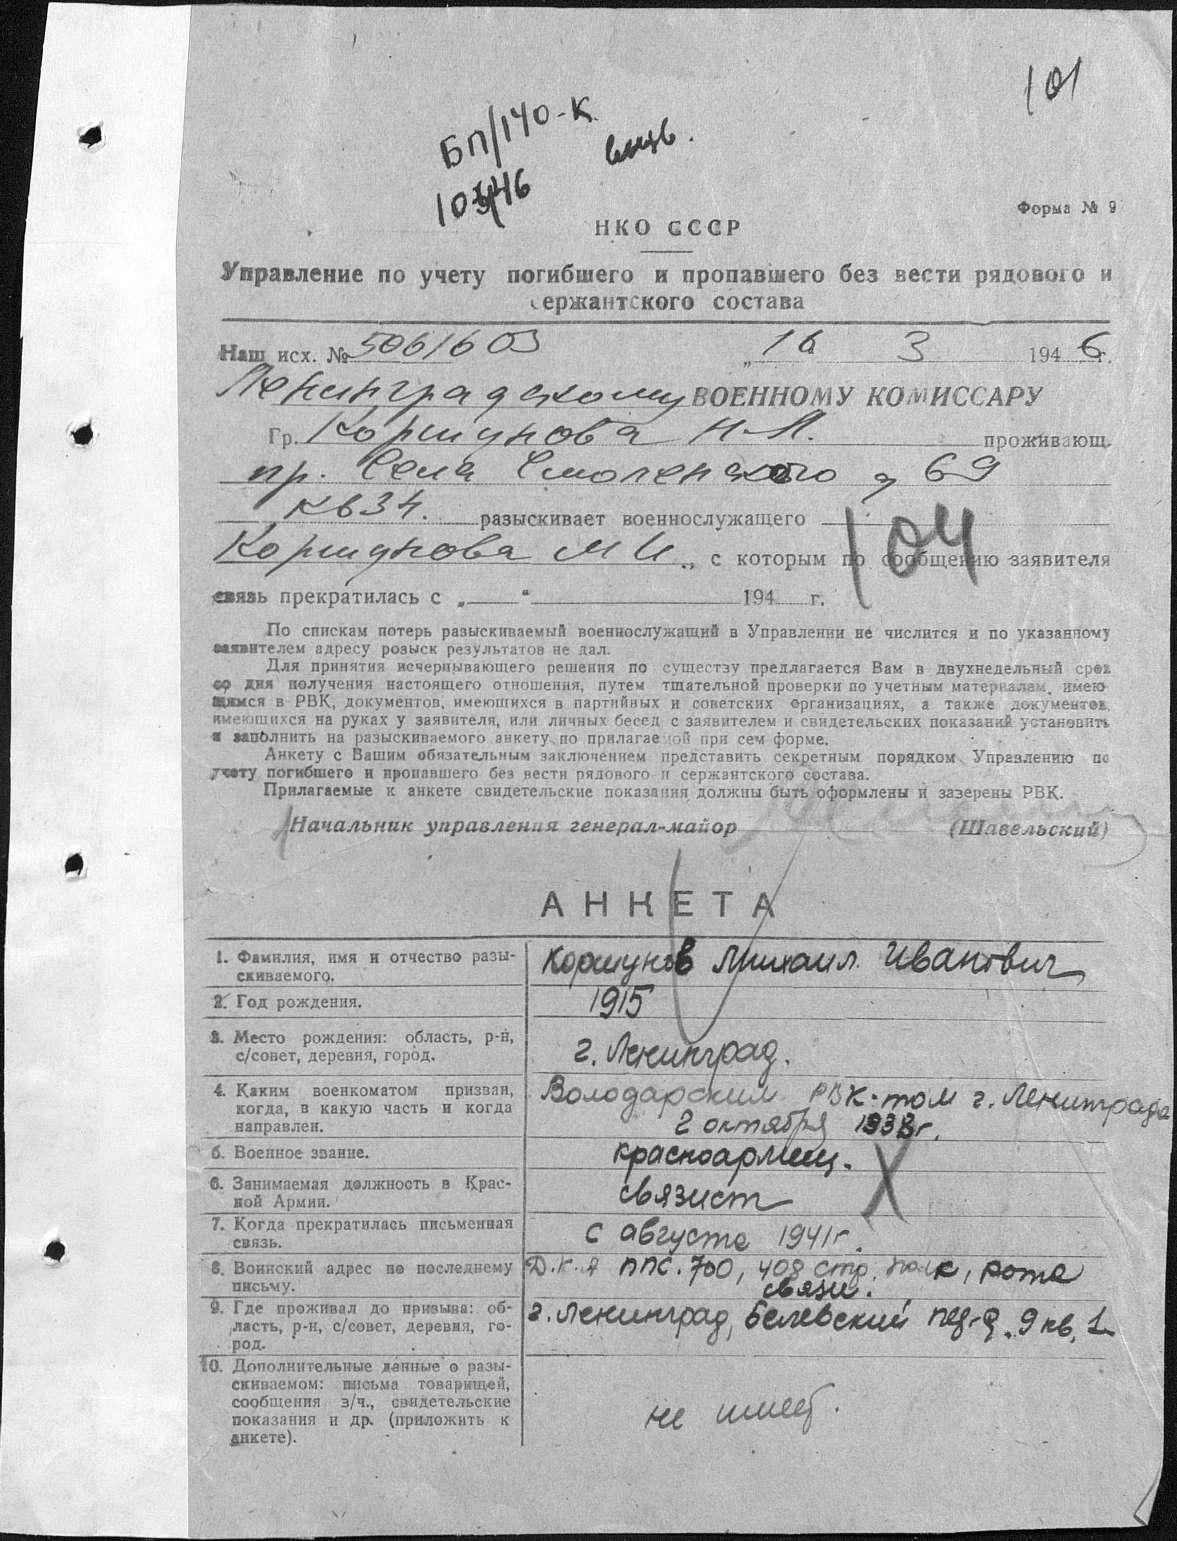 101
БП/140-К
НКО СССР
Форма № 9
Управление по учету погибшего и пропавшего без вести рядового и
сержантского состава
Наш исх. № 5061603 „16 3 1946 г.
Ленинградскому ВОЕННОМУ КОМИССАРУ
Гр. Коршунова Н.А. проживающ.
пр. Села Смоленского д 69
кв 34. разыскивает военнослужащего
104
Коршунова М И., с которым по сообщению заявителя
связь прекратилась с „ “ 194 г.
По спискам потерь разыскиваемый военнослужащий в Управлении не числится и по указанному
заявителем адресу розыск результатов не дал.
Для принятия исчерпывающего решения по существу предлагается Вам в двухнедельный срок
со дня получения настоящего отношения, путем тщательной проверки по учетным материалам, имею-
щимся в РВК, документов, имеющихся в партийных и советских организациях, а также документов,
имеющихся на руках у заявителя, или личных бесед с заявителем и свидетельских показаний установить
и заполнить на разыскиваемого анкету по прилагаемой при сем форме.
Анкету с Вашим обязательным заключением представить секретным порядком Управлению по
учету погибшего и пропавшего без вести рядового и сержантского состава.
Прилагаемые к анкете свидетельские показания должны быть оформлены и заверены РВК.
Начальник управления генерал-майор (Шавельский)
АНКЕТА
1. Фамилия, имя и отчество разы-
скиваемого.
Коршунов Михаил Иванович
2. Год рождения.
1915
3. Место рождения: область, р-н,
с/совет, деревня, город.
г. Ленинград.
4. Каким военкоматом призван,
когда, в какую часть и когда
направлен.
Володарским РВК-том г. Ленинграда
2 октября 1938 г.
5. Военное звание.
красноармеец.
6. Занимаемая должность в Крас-
ной Армии.
связист
7. Когда прекратилась письменная
связь.
с августа 1941 г.
8. Воинский адрес по последнему
письму.
Д.К.А ППС. 700, 408 стр. полк, рота
связи.
9. Где проживал до призыва: об-
ласть, р-н, с/совет, деревня, го-
род.
г. Ленинград, Белевский д. 9 кв. 1
10. Дополнительные данные о разы-
скиваемом: письма товарищей,
сообщения в/ч., свидетельские
показания и др. (приложить к
анкете).
не имеет.